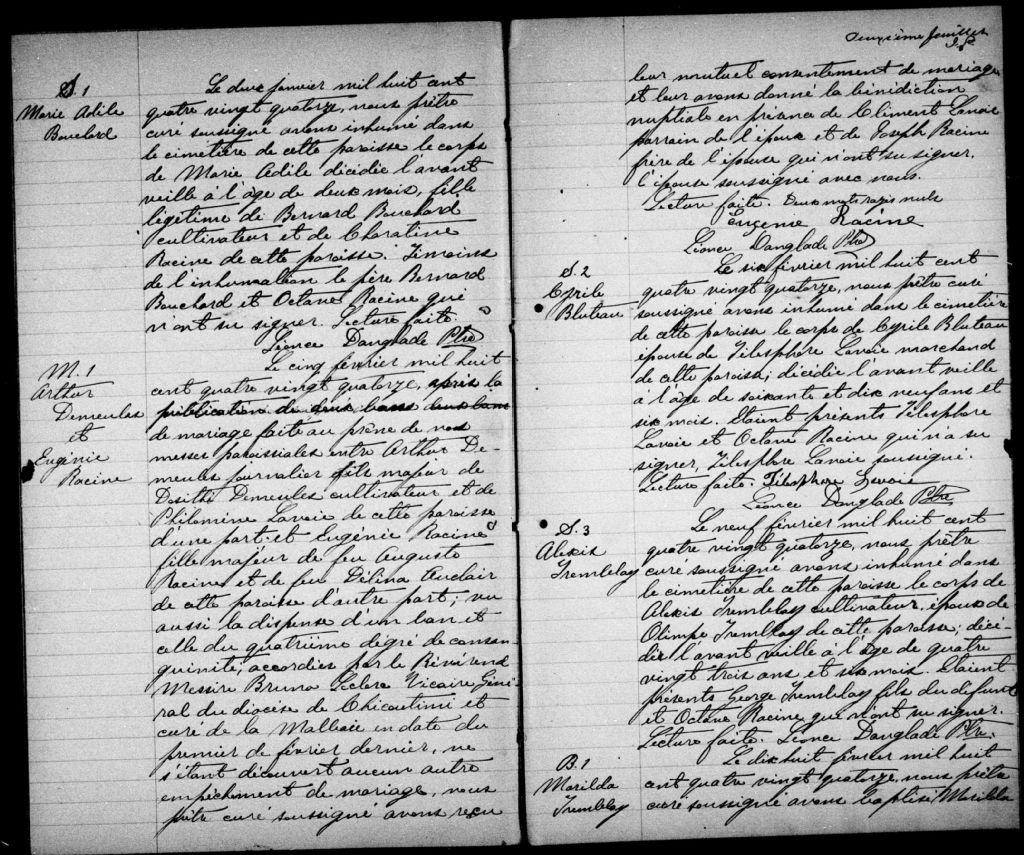 S. 1
Marie Adile
Bouchard
Le deux janvier mil huit cent
quatre vingt quatorze, nous prêtre
curé soussigné avons inhumé dans
le cimetière de cette paroisse le corps
de Marie Adile décédée l'avant
veille à l'âge de deux mois, fille
légitime de Bernard Bouchard
cultivateur et de
Racine de cette paroisse. Témoins
de l'inhumation le père Bernard
Bouchard et Octave Racine qui
n'ont su signer. Lecture faite.
Léonce Danglade Ptre
M. 1
Arthur
Demeules
et
Eugénie
Racine
Le cinq février mil huit
cent quatre vingt quatorze, après la
publication de deux bans deux bans
de mariage faite au prône de nos
messes paroissiales entre Arthur De-
meules journalier fils majeur de
Demeules cultivateur et de
Philomène Lavoie de cette paroisse
d'une part et Eugénie Racine
fille majeur de feu Auguste
Racine et de feu Délina Auclair
de cette paroisse d'autre part; vu
aussi la dispense d'un ban et
celle du quatrième dégré de consan
guinité, accordées par le Révérend
Messire Bruno Leclerc Vicaire Géné
ral du diocèse de Chicoutimi et
curé de la Malbaie en date du
premier de février dernier, ne
s'étant découvert aucun autre
empêchement de mariage, nous
prêtre curé soussigné avons reçu
deuxième feuillet
leur mutuel consentement de mariage
et leur avons donné la bénédiction
nuptiale en présence de Clément Lavoie
parrain de l'époux et de Joseph Racine
frère de l'épouse qui n'ont su signer.
L'épouse soussigné avec nous.
Lecture faite. Deux mots rayés nuls
Eugenie Racine
Léonce Danglade Ptre
S. 2
Cyrile
Bluteau
Le six février mil huit cent
quatre vingt quatorze, nous prêtre curé
soussigné avons inhumé dans le cimetière
de cette paroisse le corps de Cyrile Bluteau
épouse de Télesphore Lavoie marchand
de cette paroisse, décédée l'avant veille
à l'âge de soixante et dix neuf ans et
six mois. Etaient présents Télesphore
Lavoie et Octave Racine qui n'a su
signer, Télesphore Lavoie soussigné.
Lecture faite. Télesphore Lavoie
Léonce Danglade Ptre
S. 3
Alexis
Tremblay
Le neuf février mil huit cent
quatre vingt quatorze, nous prêtre
curé soussigné avons inhumé dans
le cimetière de cette paroisse le corps de
Alexis Tremblay cultivateur, époux de
Olimpe Tremblay de cette paroisse; décé-
dé l'avant veille à l'âge de quatre
vingt trois ans et six mois. Etaient
présents George Tremblay fils du défunt
et Octave Racine qui n'ont su signer.
Lecture faite. Léonce Danglade Ptre.
B. 1
Marilda
Tremblay
Le dix huit février mil huit
cent quatre vingt quatorze, nous prêtre
curé soussigné avons baptisé Marilda